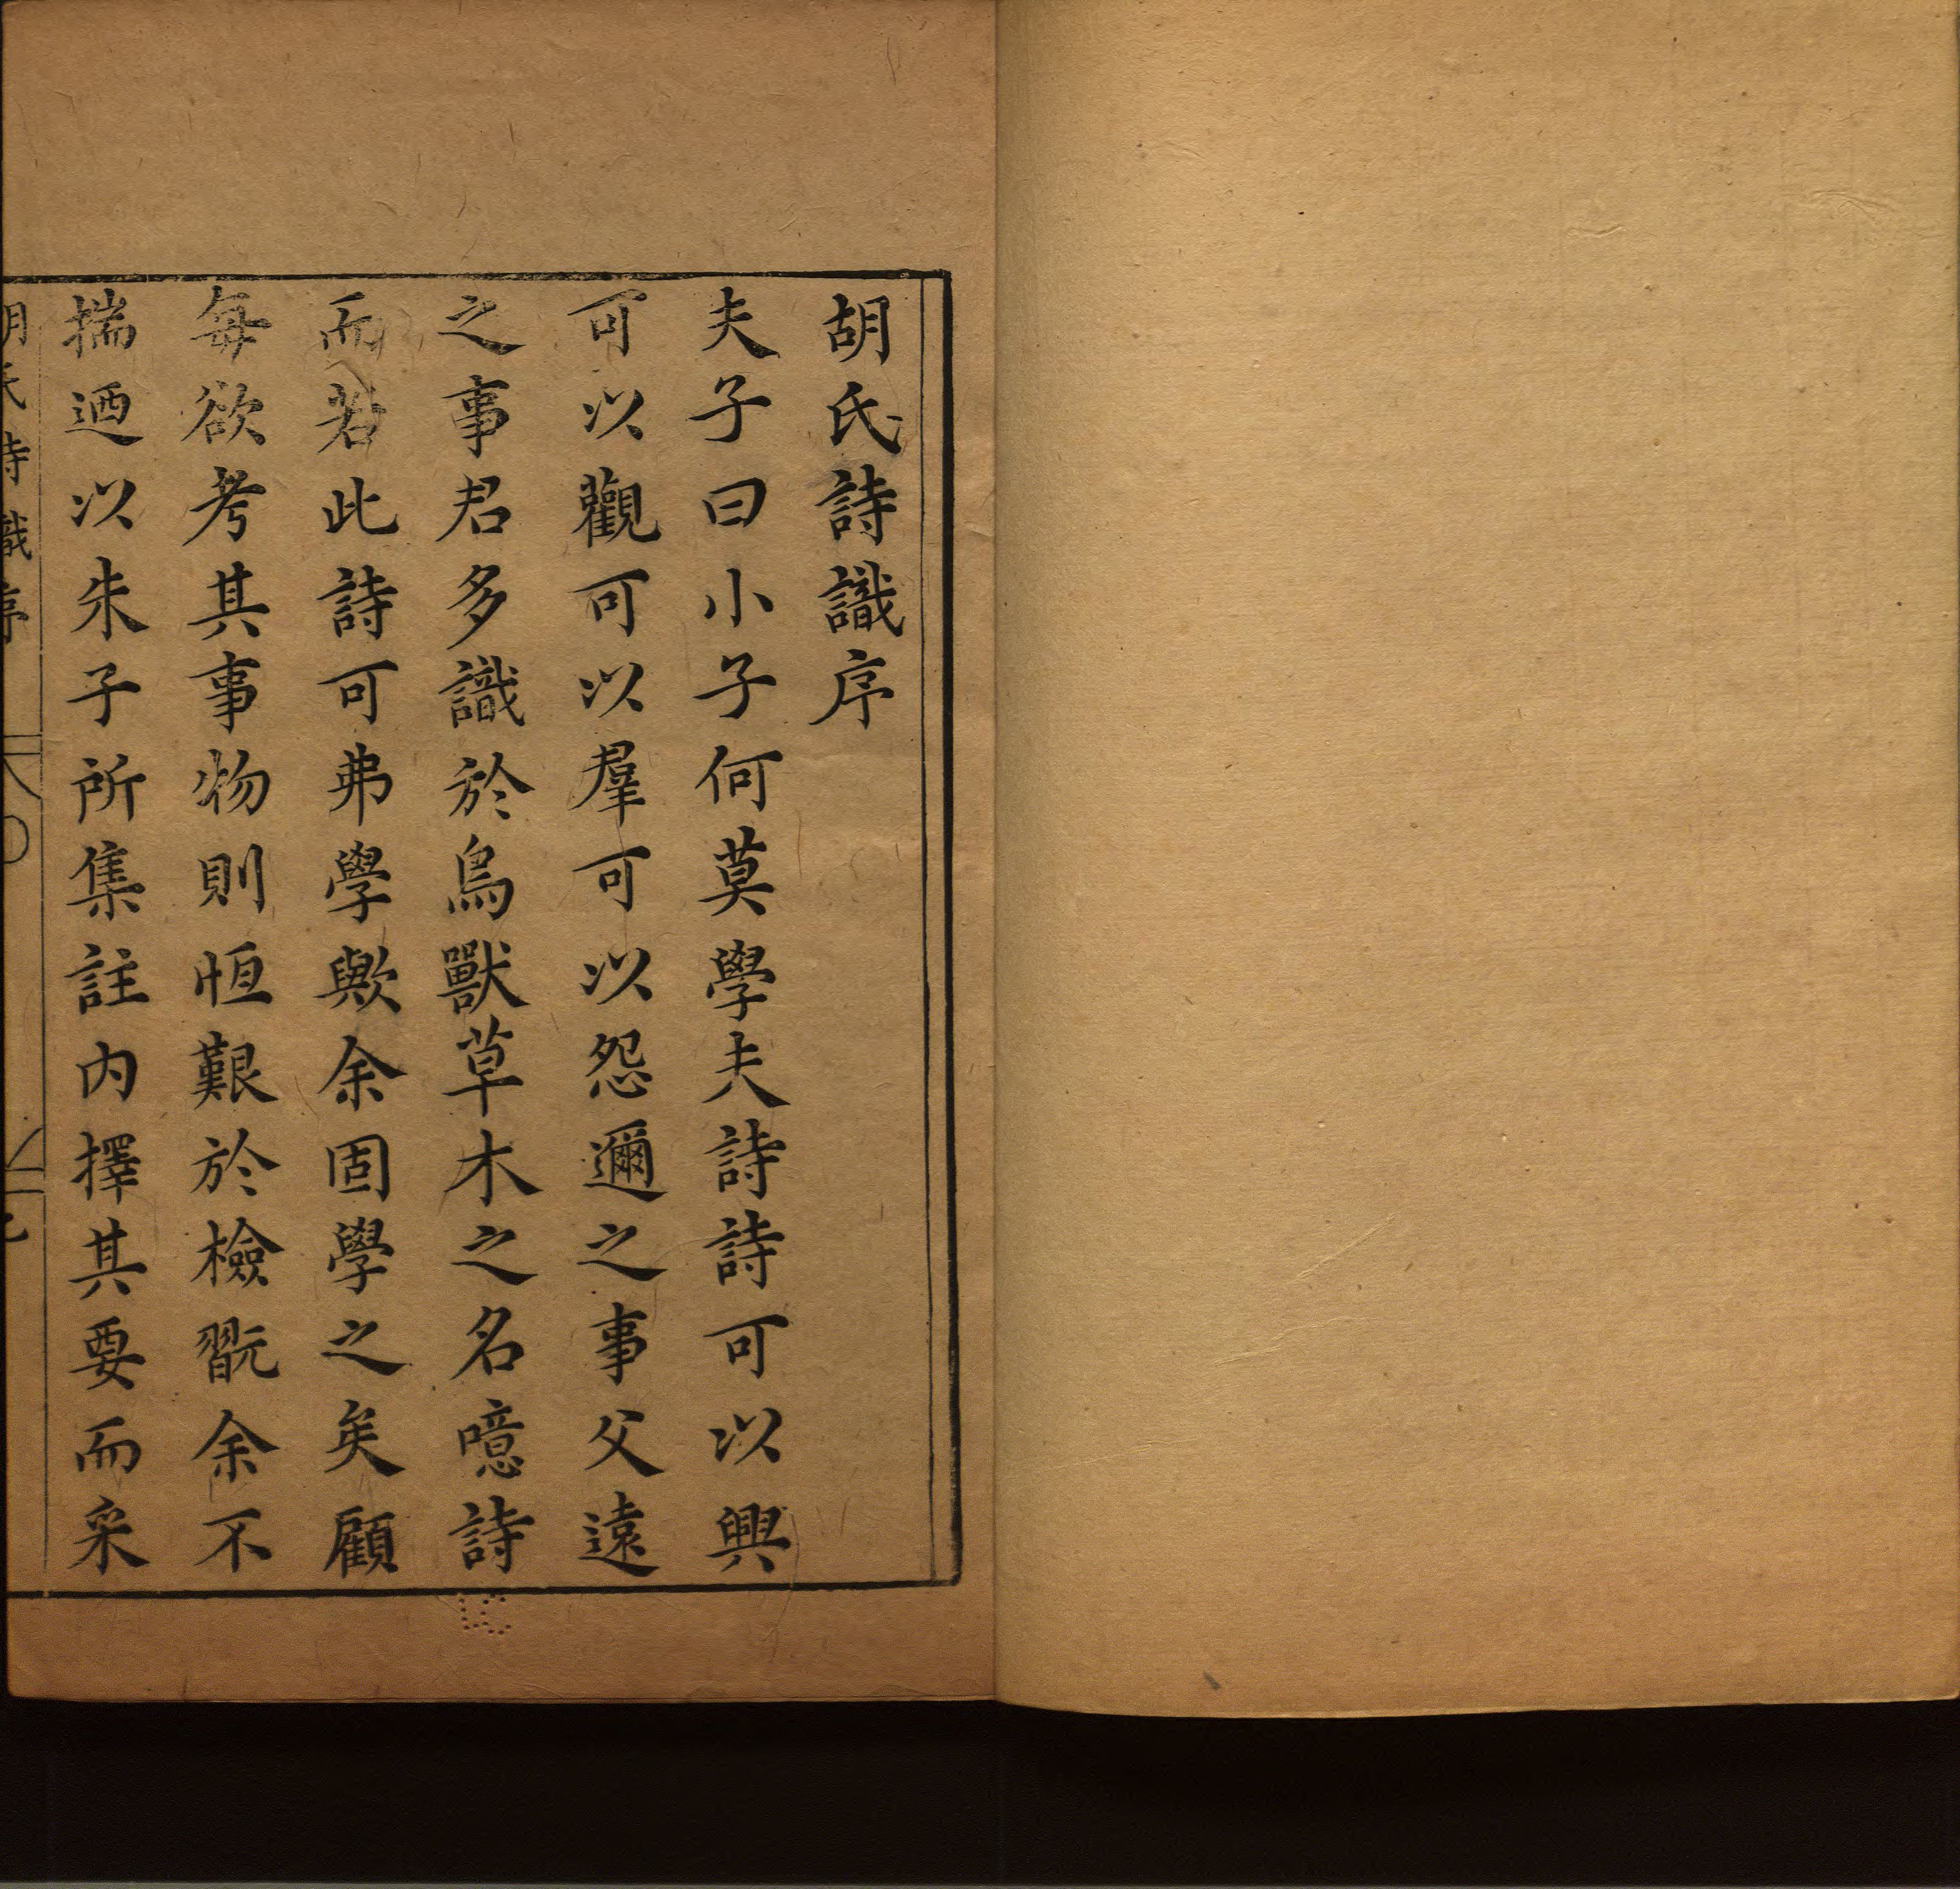 胡氏詩識序
夫子曰小子何莫學夫詩詩可以興
可以觀可以羣可以怨邇之事父遠
之事君多識於鳥獸草木之名噫詩
而若此詩可弗學歟余固學之矣顧
每欲考其事物則恒艱於檢翫余不
揣迺以朱子所集註内擇其要而采
胡氏詩識序